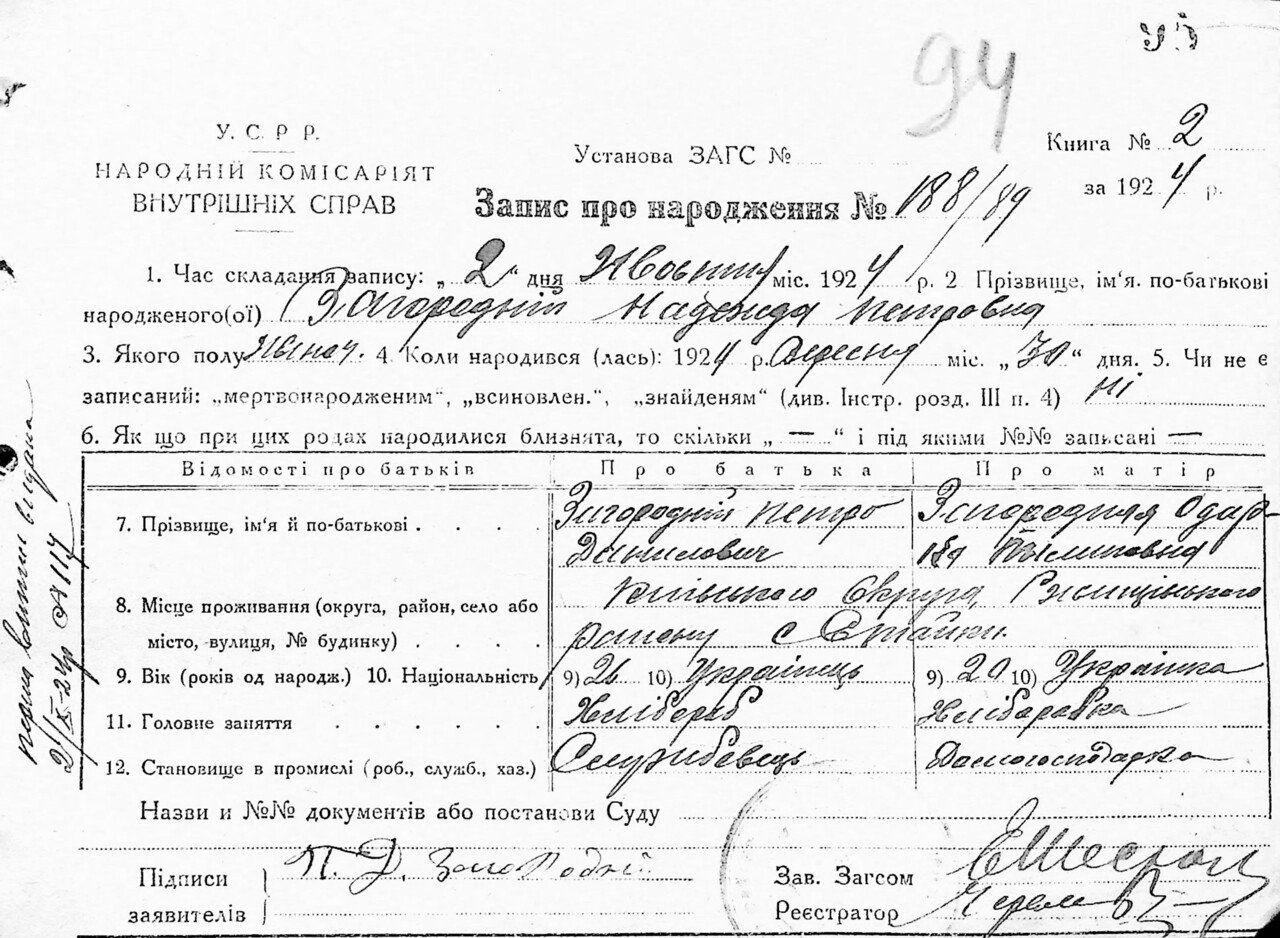 94
У. С. Р Р.
НАРОДНІЙ КОМІСАРІЯТ
ВНУТРІШНІХ СПРАВ
Установа ЗАГС №
Книга № 2
за 1924 р.
Запис про народження № 188/89
1. Час складання запису: „2“ дня Жовтня міс. 1924 р. 2 Прізвище, ім'я. по-батькові
народженого(ої) Загородній Надежда Петровна
3. Якого полу жіноч. 4 Коли народився (лась): 1924 р. Вересня міс. „30“ дня. 5. Чи не є
записаний: „мертвонародженим“, „всиновлен.“, „знайденям“ (див. Інстр. розд. III п. 4) ні
6. Як що при цих родах народилися близнята, то скільки „ — “ і під якими №№ записані —
Відомості про батьків Про батька Про матір
7. Прізвище, ім'я й по-батькові . . . . Загородній Петро Загородная Одар-
Данилович
8. Місце проживання (округа, район, село або Київського Округа, Ржищівського
місто, вулиця, № будинку) . . . . району с Стайки.
9. Вік (років од народж.) 10. Національність 9) 26 10) Українець 9) 20 10) Українка
11. Головне заняття . . . . . Хлібороб Хліборобка
12. Становище в промислі (роб., служб., хаз.) Домогосподарка
Назви и №№ документів або постанови Суду
Підписи П. Д. Загородній
заявителів
Зав. Загсом
Реєстратор